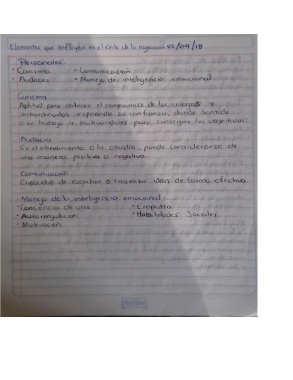 Elementos que influyen en el éxito de la negociación 03/09/18
Personales:
• Carisma • Comunicación
• Audacia • Manejo de inteligencia emocional
Carisma
Aptitud para obtener el compromiso de los colegas y
subordinados inspirando su confianza, dando sentido
a su trabajo y motivandolos para conseguir los objetivos.
Audacia
Es el atrevimiento o la osadía, puede considerarse de
una manera positiva o negativa.
Comunicación
Capacidad de escuchar o transmitir ideas de forma efectiva
Manejo de la inteligencia emocional
• Conciencia de uno • Empatía
• Autorregulación • Habilidades Sociales
• Motivación